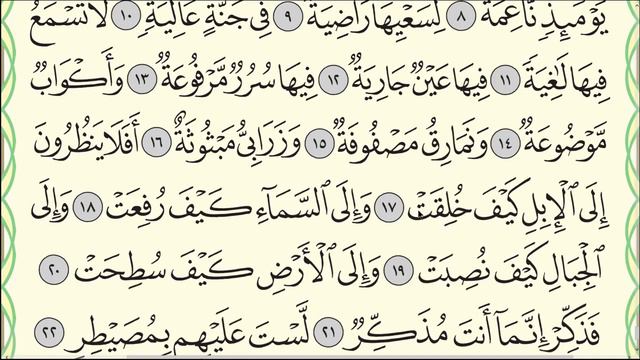 يَوْمَئِذٍ نَّاعِمَةٌ ٨ لِّسَعْيِهَا رَاضِيَةٌ ٩ فِى جَنَّةٍ عَالِيَةٍ ١٠ لَّا تَسْمَعُ
فِيهَا لَٰغِيَةً ١١ فِيهَا عَيْنٌ جَارِيَةٌ ١٢ فِيهَا سُرُرٌ مَّرْفُوعَةٌ ١٣ وَأَكْوَابٌ
مَّوْضُوعَةٌ ١٤ وَنَمَارِقُ مَصْفُوفَةٌ ١٥ وَزَرَابِىُّ مَبْثُوثَةٌ ١٦ أَفَلَا يَنظُرُونَ
إِلَى ٱلْإِبِلِ كَيْفَ خُلِقَتْ ١٧ وَإِلَى ٱلسَّمَآءِ كَيْفَ رُفِعَتْ ١٨ وَإِلَى
ٱلْجِبَالِ كَيْفَ نُصِبَتْ ١٩ وَإِلَى ٱلْأَرْضِ كَيْفَ سُطِحَتْ ٢٠
فَذَكِّرْ إِنَّمَآ أَنتَ مُذَكِّرٌ ٢١ لَّسْتَ عَلَيْهِم بِمُصَيْطِرٍ ٢٢